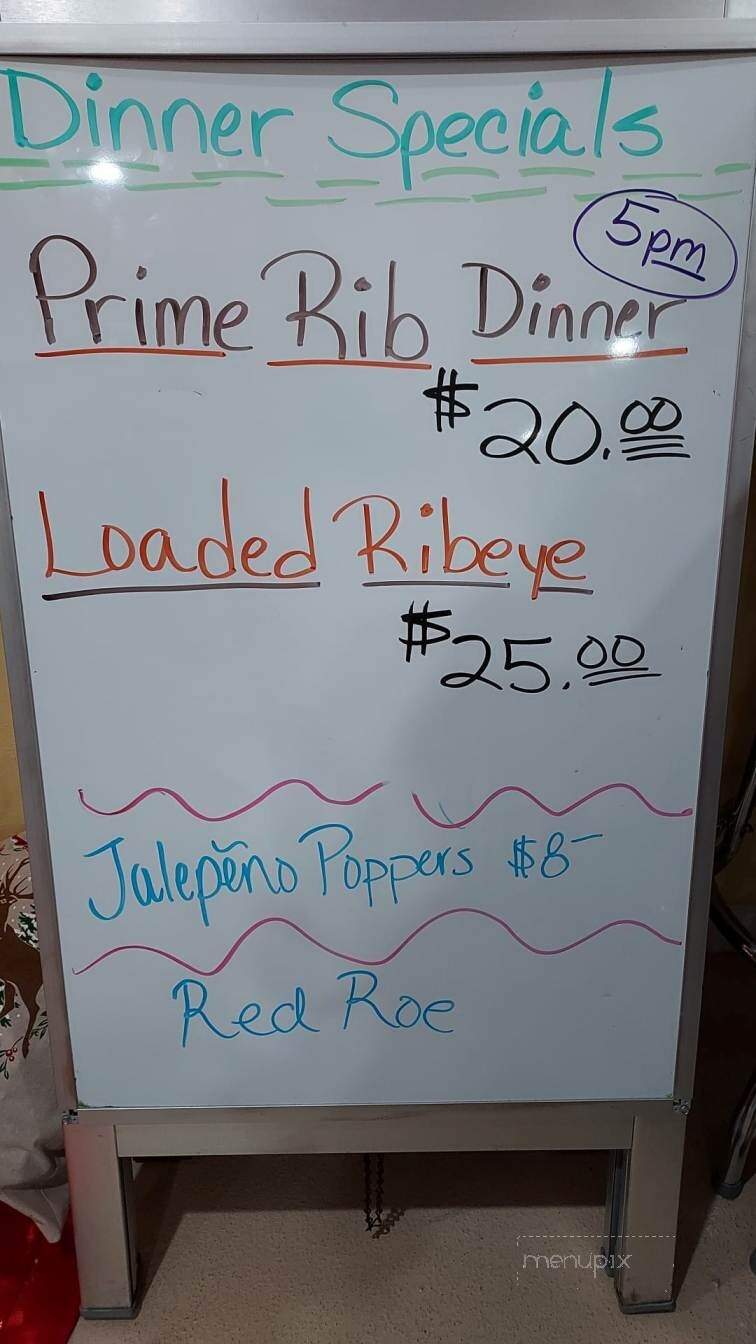 Dinner Specials
5pm
Prime Rib Dinner
$20.00
Loaded Ribeye
$25.00
Jalepẽno Poppers $8-
Red Roe
menupix